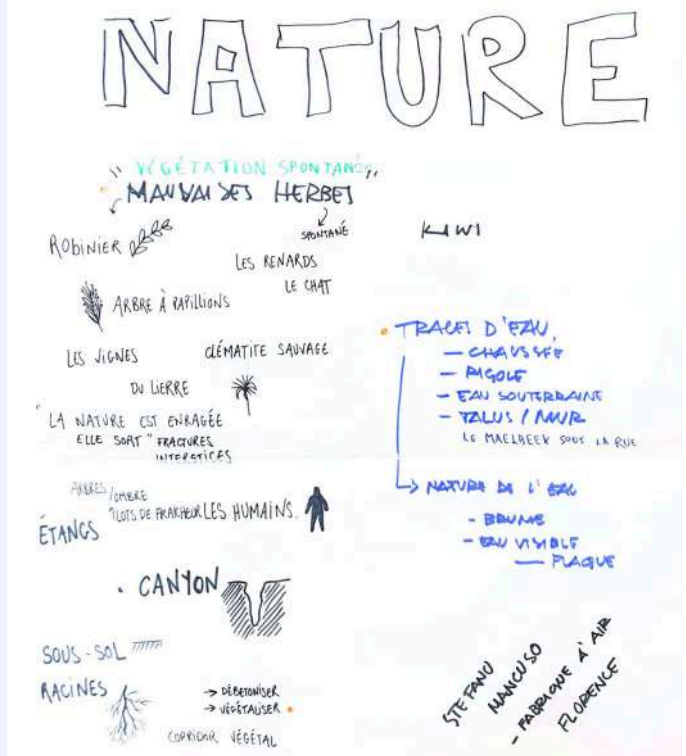 NATURE
" VÉGÉTATION SPONTANÉ "
MAUVAISES HERBES
SPONTANÉ
ROBINIER
KIWI
LES RENARDS
LE CHAT
ARBRE À PAPILLIONS
LES VIGNES
CLÉMATITE SAUVAGE
DU LIERRE
"LA NATURE EST ENRAGÉE
ELLE SORT" FRACTURES
INTERSTICES
ARBRES/OMBRE
ILOTS DE FRAICHEUR LES HUMAINS.
ÉTANGS
• CANYON
SOUS-SOL
RACINES
→ DÉBETONISER
→ VÉGÉTALISER •
CORRIDOR VÉGÉTAL
• TRACES D'EAU
— CHAUSSÉE
— RIGOLE
— EAU SOUTERRAINE
— TALUS / MUR
LE MAELBEEK SOUS LA RUE
NATURE DE L'EAU
- BRUME
- EAU VISIBLE
— PLAQUE
STEFANU
MANCUSO
- FABRIQUE À AIR
FLORENCE